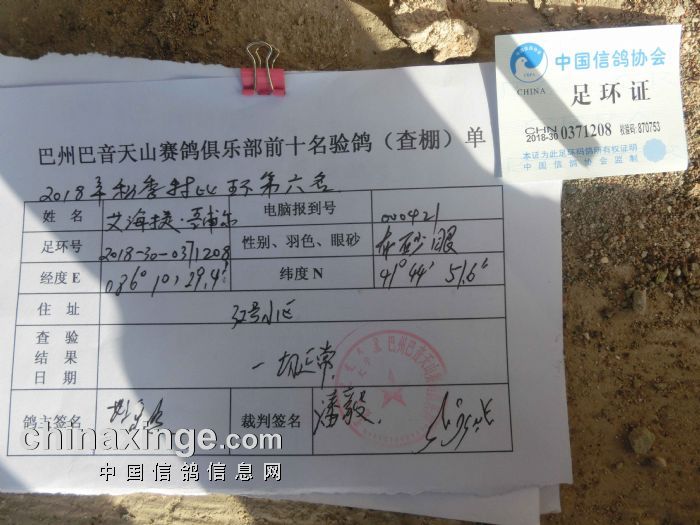 中国信鸽协会
CHINA
足环证
CHN
2018-30 0371208 校验码:870753
本证为此足环码鸽所有权证明
中国信鸽协会监制
巴州巴音天山赛鸽俱乐部前十名验鸽（查棚）单
2018年秋季 环第六名
姓名 艾海提·吾甫尔 电脑报到号 000421
足环号 2018-30-0371208 性别、羽色、眼砂 砂眼
经度E 086°10'29.4" 纬度N 41°44'51.6"
住址 小区
查验结果日期 一切正常
巴州巴音天山
鸽主签名 裁判签名 潘毅
chinaxinge.com
中国信鸽信息网